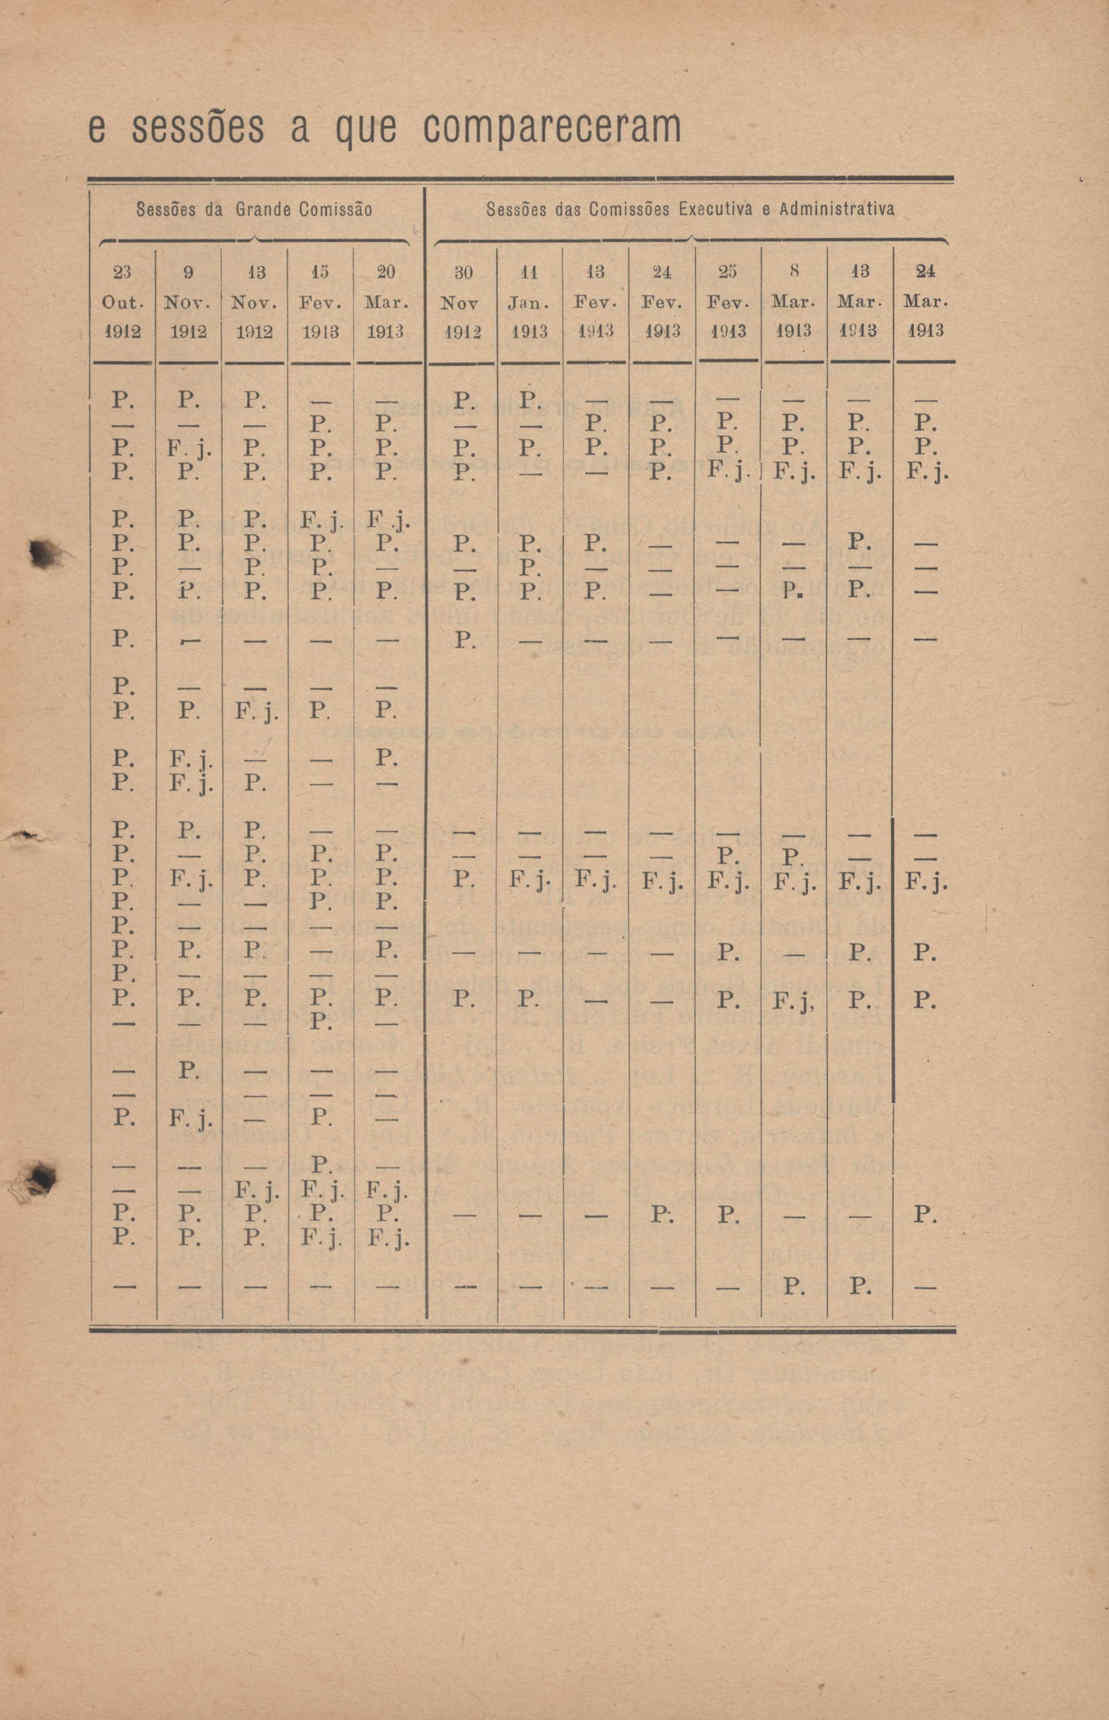 e sessões a que compareceram
Sessões da Grande Comissão Sessões das Comissões Executiva e Administrativa
23 9 13 15 20 30 11 13 24 25 8 13 24
Out. Nov. Nov. Fev. Mar. Nov Jan. Fev. Fev. Fev. Mar. Mar. Mar.
1912 1912 1912 1913 1913 1912 1913 1913 1913 1913 1913 1913 1913
P. P. P. — — P. P. — — — — — —
— — — P. P. — — P. P. P. P. P. P.
P. F. j. P. P. P. P. P. P. P. P. P. P. P.
P. P. P. P. P. P. — — P. F. j. F. j. F. j. F. j.
P. P. P. F. j. F .j.
P. P. P. P. P. P. P. P. — — — P. —
P. — P. P. — — P. — — — — — —
P. P. P. P. P. P. P. P. — — P. P. —
P. — — — — P. — — — — — — —
P. — — — —
P. P. F. j. P. P.
P. F. j. — — P.
P. F. j. P. — —
P. P. P. — — — — — — — — — —
P. — P. P. P. — — — — P. P. — —
P. F. j. P. P. P. P. F. j. F. j. F. j. F. j. F. j. F. j. F. j.
P. — — P. P.
P. — — — —
P. P. P. — P. — — — — P. — P. P.
P. — — — —
P. P. P. P. P. P. P. — — P. F. j, P. P.
— — — P. —
— P. — — —
— — — — —
P. F. j. — P. —
— — — P. —
— — F. j. F. j. F. j.
P. P. P. P. P. — — — P. P. — — P.
P. P. P. F. j. F. j.
— — — — — — — — — — P. P. —